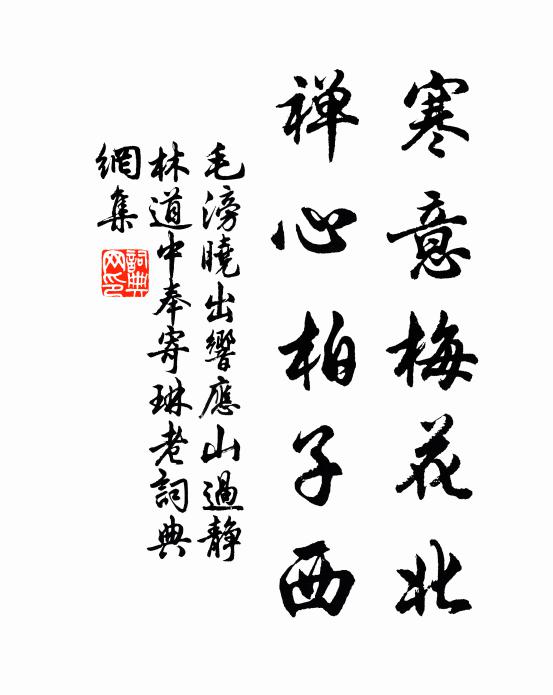 寒意梅花北
禅心柏子西
毛滂曉出響應山過静
林道中奉寄琳老詞典
網集
詞典
网印